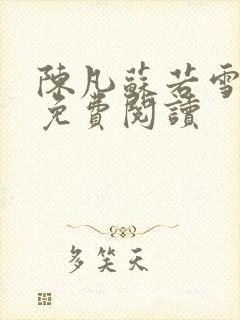 陳凡蘇若雪
免費閱讀
多笑天